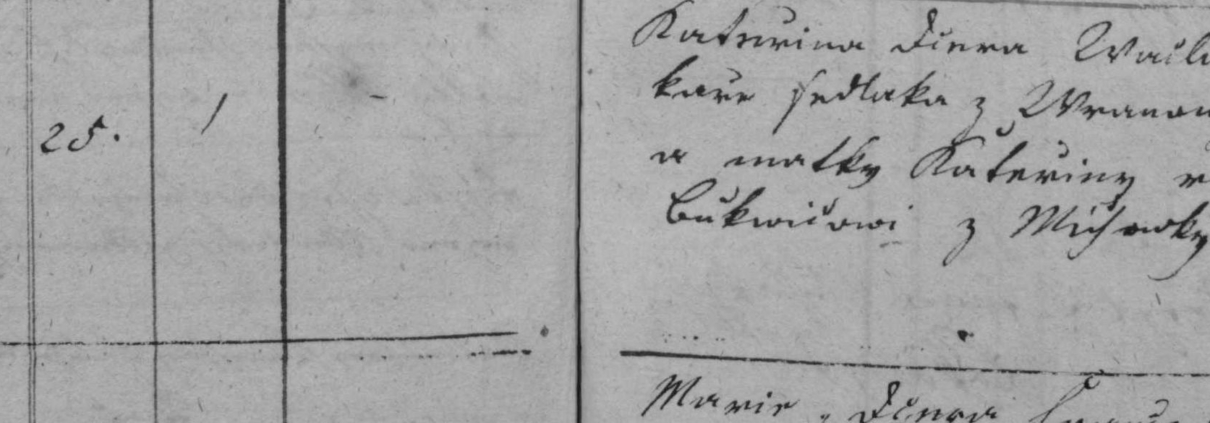 25. 1 -
Katerina dcera Wacl
kare sedlaka z Wranow
a matky Kateriny
Bukwicowi z Michowky
Marie, dcera